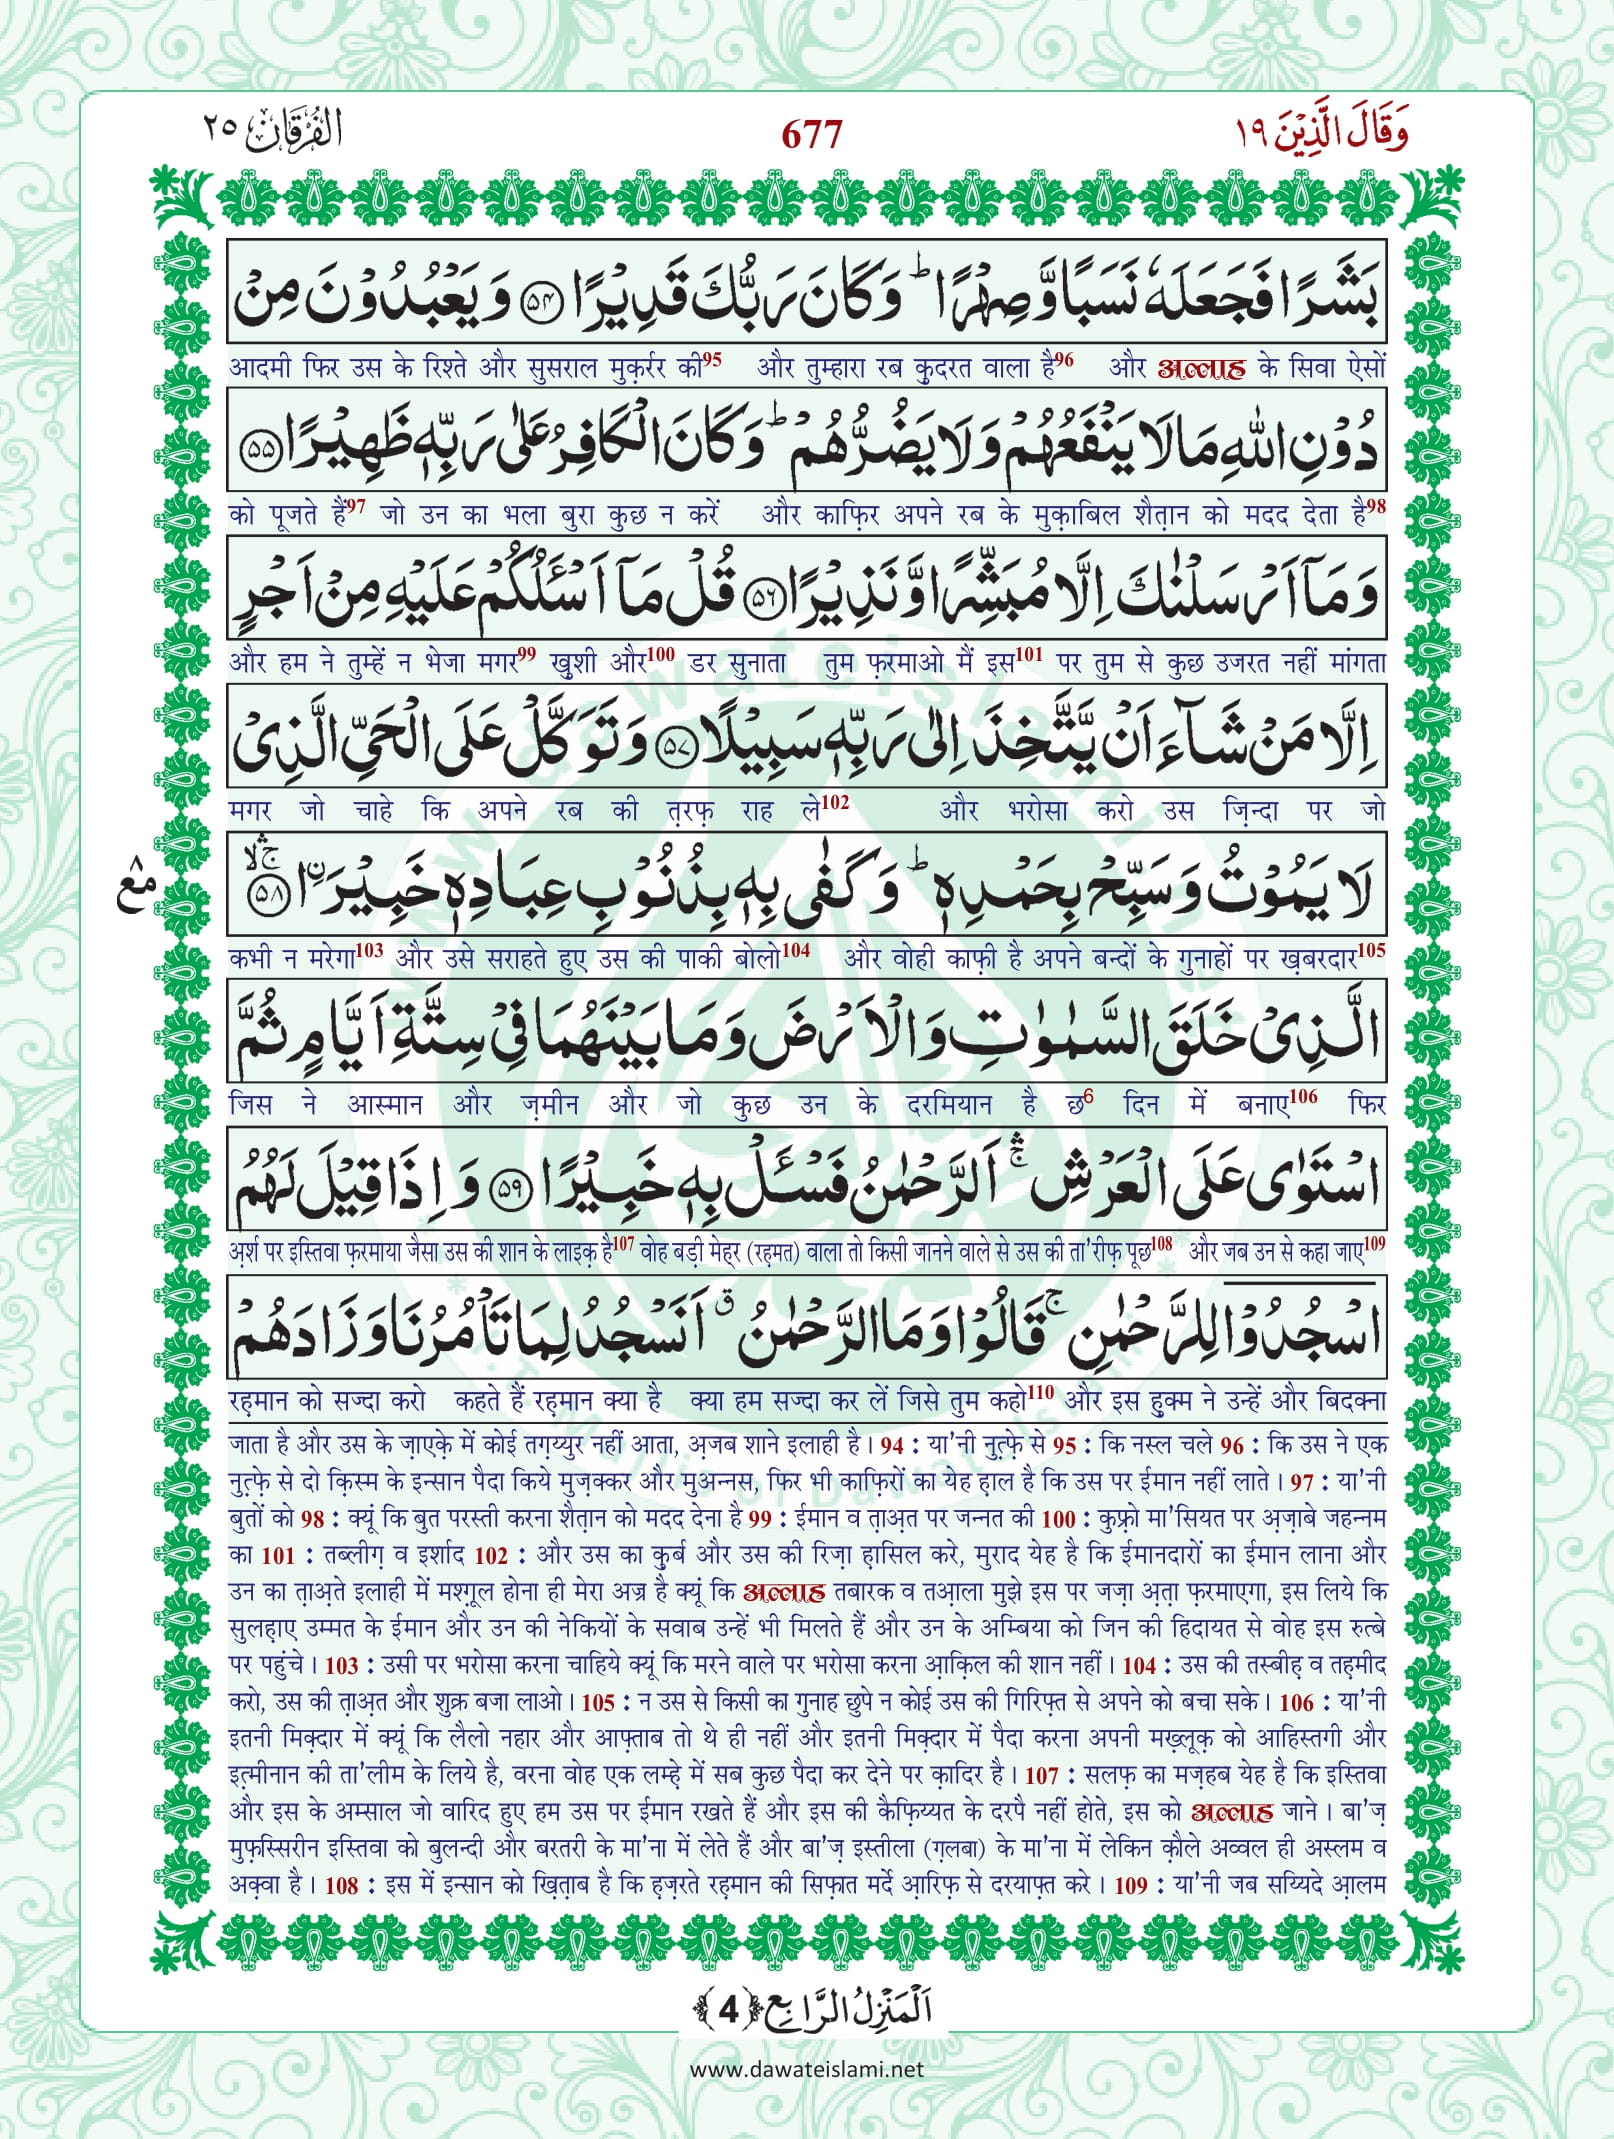 وَقَالَ الَّذِیْنَ ۱۹ 677 الفُرْقَان ۲۵
بَشَرًا فَجَعَلَهٗ نَسَبًا وَّصِهْرًاؕ وَكَانَ رَبُّكَ قَدِیْرًا ﴿۵۴﴾ وَیَعْبُدُوْنَ مِنْ
आदमी फिर उस के रिश्ते और सुसराल मुक़र्रर की95 और तुम्हारा रब क़ुदरत वाला है96 और अल्लाह के सिवा ऐसों
دُوْنِ اللّٰهِ مَا لَا یَنْفَعُهُمْ وَلَا یَضُرُّهُمْؕ وَكَانَ الْكَافِرُ عَلٰى رَبِّهٖ ظَهِیْرًا ﴿۵۵﴾
को पूजते हैं97 जो उन का भला बुरा कुछ न करें और काफ़िर अपने रब के मुक़ाबिल शैत़ान को मदद देता है98
وَمَاۤ اَرْسَلْنٰكَ اِلَّا مُبَشِّرًا وَّنَذِیْرًا ﴿۵۶﴾ قُلْ مَاۤ اَسْـَٔلُكُمْ عَلَیْهِ مِنْ اَجْرٍ
और हम ने तुम्हें न भेजा मगर99 ख़ुशी और100 डर सुनाता तुम फ़रमाओ मैं इस101 पर तुम से कुछ उजरत नहीं मांगता
اِلَّا مَنْ شَآءَ اَنْ یَّتَّخِذَ اِلٰى رَبِّهٖ سَبِیْلًا ﴿۵۷﴾ وَتَوَكَّلْ عَلَى الْحَیِّ الَّذِیْ
मगर जो चाहे कि अपने रब की त़रफ़ राह ले102 और भरोसा करो उस ज़िन्दा पर जो
لَا یَمُوْتُ وَسَبِّحْ بِحَمْدِهٖؕ وَكَفٰى بِهٖ بِذُنُوْبِ عِبَادِهٖ خَبِیْرَاۙۛ ﴿۵۸﴾
कभी न मरेगा103 और उसे सराहते हुए उस की पाकी बोलो104 और वोही काफ़ी है अपने बन्दों के गुनाहों पर ख़बरदार105
الَّذِیْ خَلَقَ السَّمٰوٰتِ وَالْاَرْضَ وَمَا بَیْنَهُمَا فِیْ سِتَّةِ اَیَّامٍ ثُمَّ
जिस ने आस्मान और ज़मीन और जो कुछ उन के दरमियान है छ6 दिन में बनाए106 फिर
اسْتَوٰى عَلَى الْعَرْشِۚۛ اَلرَّحْمٰنُ فَسْـَٔلْ بِهٖ خَبِیْرًا ﴿۵۹﴾ وَاِذَا قِیْلَ لَهُمُ
अ़र्श पर इस्तिवा फ़रमाया जैसा उस की शान के लाइक़ है107 वोह बड़ी मेह्र (रह़मत) वाला तो किसी जानने वाले से उस की ता'रीफ़ पूछ108 और जब उन से कहा जाए109
اسْجُدُوْا لِلرَّحْمٰنِۚ قَالُوْا وَمَا الرَّحْمٰنُۗ اَنَسْجُدُ لِمَا تَاْمُرُنَا وَزَادَهُمْ
रह़मान को सज्दा करो कहते हैं रह़मान क्या है क्या हम सज्दा कर लें जिसे तुम कहो110 और इस हुक्म ने उन्हें और बिदकना
जाता है और उस के ज़ाएक़े में कोई तग़य्युर नहीं आता, अ़जब शाने इलाही है। 94 : या'नी नुत़्फ़े से 95 : कि नस्ल चले 96 : कि उस ने एक
नुत़्फ़े से दो क़िस्म के इन्सान पैदा किये मुज़क्कर और मुअन्नस, फिर भी काफ़िरों का येह ह़ाल है कि उस पर ईमान नहीं लाते। 97 : या'नी
बुतों को 98 : क्यूं कि बुत परस्ती करना शैत़ान को मदद देना है 99 : ईमान व त़ाअ़त पर जन्नत की 100 : कुफ़्रो मा'सियत पर अ़ज़ाबे जहन्नम
का 101 : तब्लीग़ व इर्शाद 102 : और उस का क़ुर्ब और उस की रिज़ा ह़ासिल करे, मुराद येह है कि ईमानदारों का ईमान लाना और
उन का त़ाअ़ते इलाही में मश्ग़ूल होना ही मेरा अज्र है क्यूं कि अल्लाह तबारक व तआ़ला मुझे इस पर जज़ा अ़त़ा फ़रमाएगा, इस लिये कि
सुलह़ाए उम्मत के ईमान और उन की नेकियों के सवाब उन्हें भी मिलते हैं और उन के अम्बिया को जिन की हिदायत से वोह इस रुत्बे
पर पहुंचे। 103 : उसी पर भरोसा करना चाहिये क्यूं कि मरने वाले पर भरोसा करना आ़क़िल की शान नहीं। 104 : उस की तस्बीह़ व तह़मीद
करो, उस की त़ाअ़त और शुक्र बजा लाओ। 105 : न उस से किसी का गुनाह छुपे न कोई उस की गिरिफ़्त से अपने को बचा सके। 106 : या'नी
इतनी मिक़्दार में क्यूं कि लैलो नहार और आफ़्ताब तो थे ही नहीं और इतनी मिक़्दार में पैदा करना अपनी मख़्लूक़ को आहिस्तगी और
इत़्मीनान की ता'लीम के लिये है, वरना वोह एक लम्ह़े में सब कुछ पैदा कर देने पर क़ादिर है। 107 : सलफ़ का मज़हब येह है कि इस्तिवा
और इस के अम्साल जो वारिद हुए हम उस पर ईमान रखते हैं और इस की कैफ़िय्यत के दरपै नहीं होते, इस को अल्लाह जाने। बा'ज़
मुफ़स्सिरीन इस्तिवा को बुलन्दी और बरतरी के मा'ना में लेते हैं और बा'ज़ इस्तीला (ग़लबा) के मा'ना में लेकिन क़ौले अव्वल ही अस्लम व
अक़्वा है। 108 : इस में इन्सान को ख़ित़ाब है कि ह़ज़रते रह़मान की सिफ़ात मर्दे आ़रिफ़ से दरयाफ़्त करे। 109 : या'नी जब सय्यिदे आ़लम
اَلْمَنْزِلُ الرَّابِع ﴿4﴾
www.dawateislami.net